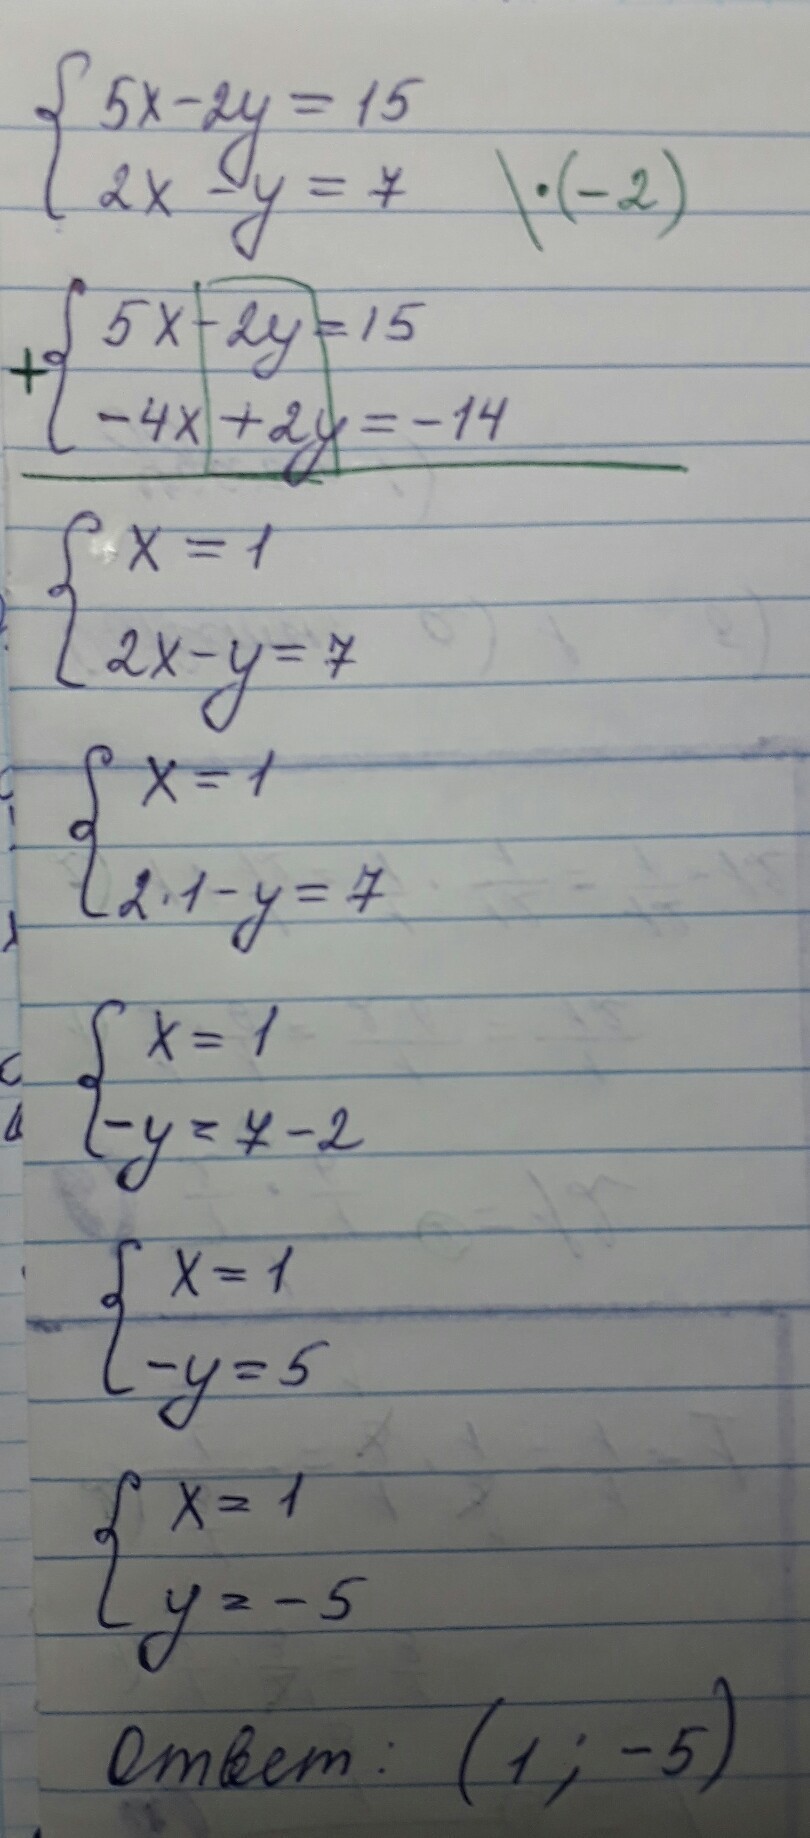 5x-2y=15
2x-y=7 \·(-2)
5x-2y=15
+
-4x+2y=-14
x=1
2x-y=7
x=1
2·1-y=7
x=1
-y=7-2
x=1
-y=5
x=1
y=-5
Ответ: (1; -5)